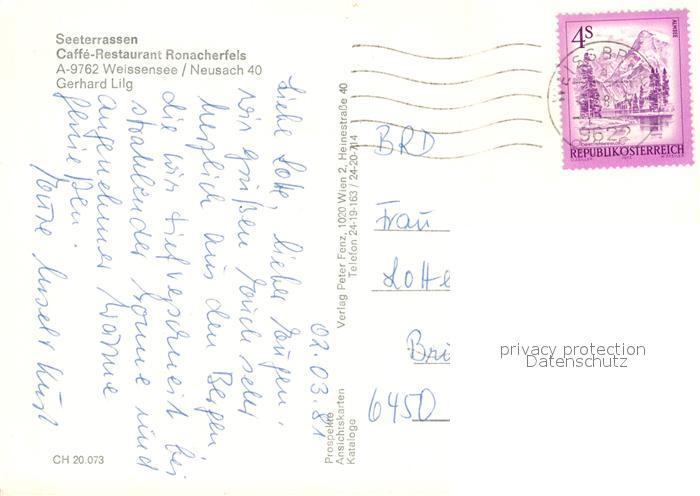 Seeterrassen
Caffé-Restaurant Ronacherfels
A-9762 Weissensee / Neusach 40
Gerhard Lilg
Liebe Lotte, lieber Jürgen,
wir grüßen Euch sehr
herzlich aus den Bergen
die wir tief verschneit bei
strahlender Sonne und
angenehmer Wärme
genießen.
Eure
02.03.81
CH 20.073
Verlag Peter Fenz, 1020 Wien 2, Heinestraße 40
Telefon 24-19-163 / 24-20-714
Prospekte
Ansichtskarten
Kataloge
4 S
ALMSEE
REPUBLIK ÖSTERREICH
9622
BRD
Frau
Lotte
Bri
6450
privacy protection
Datenschutz